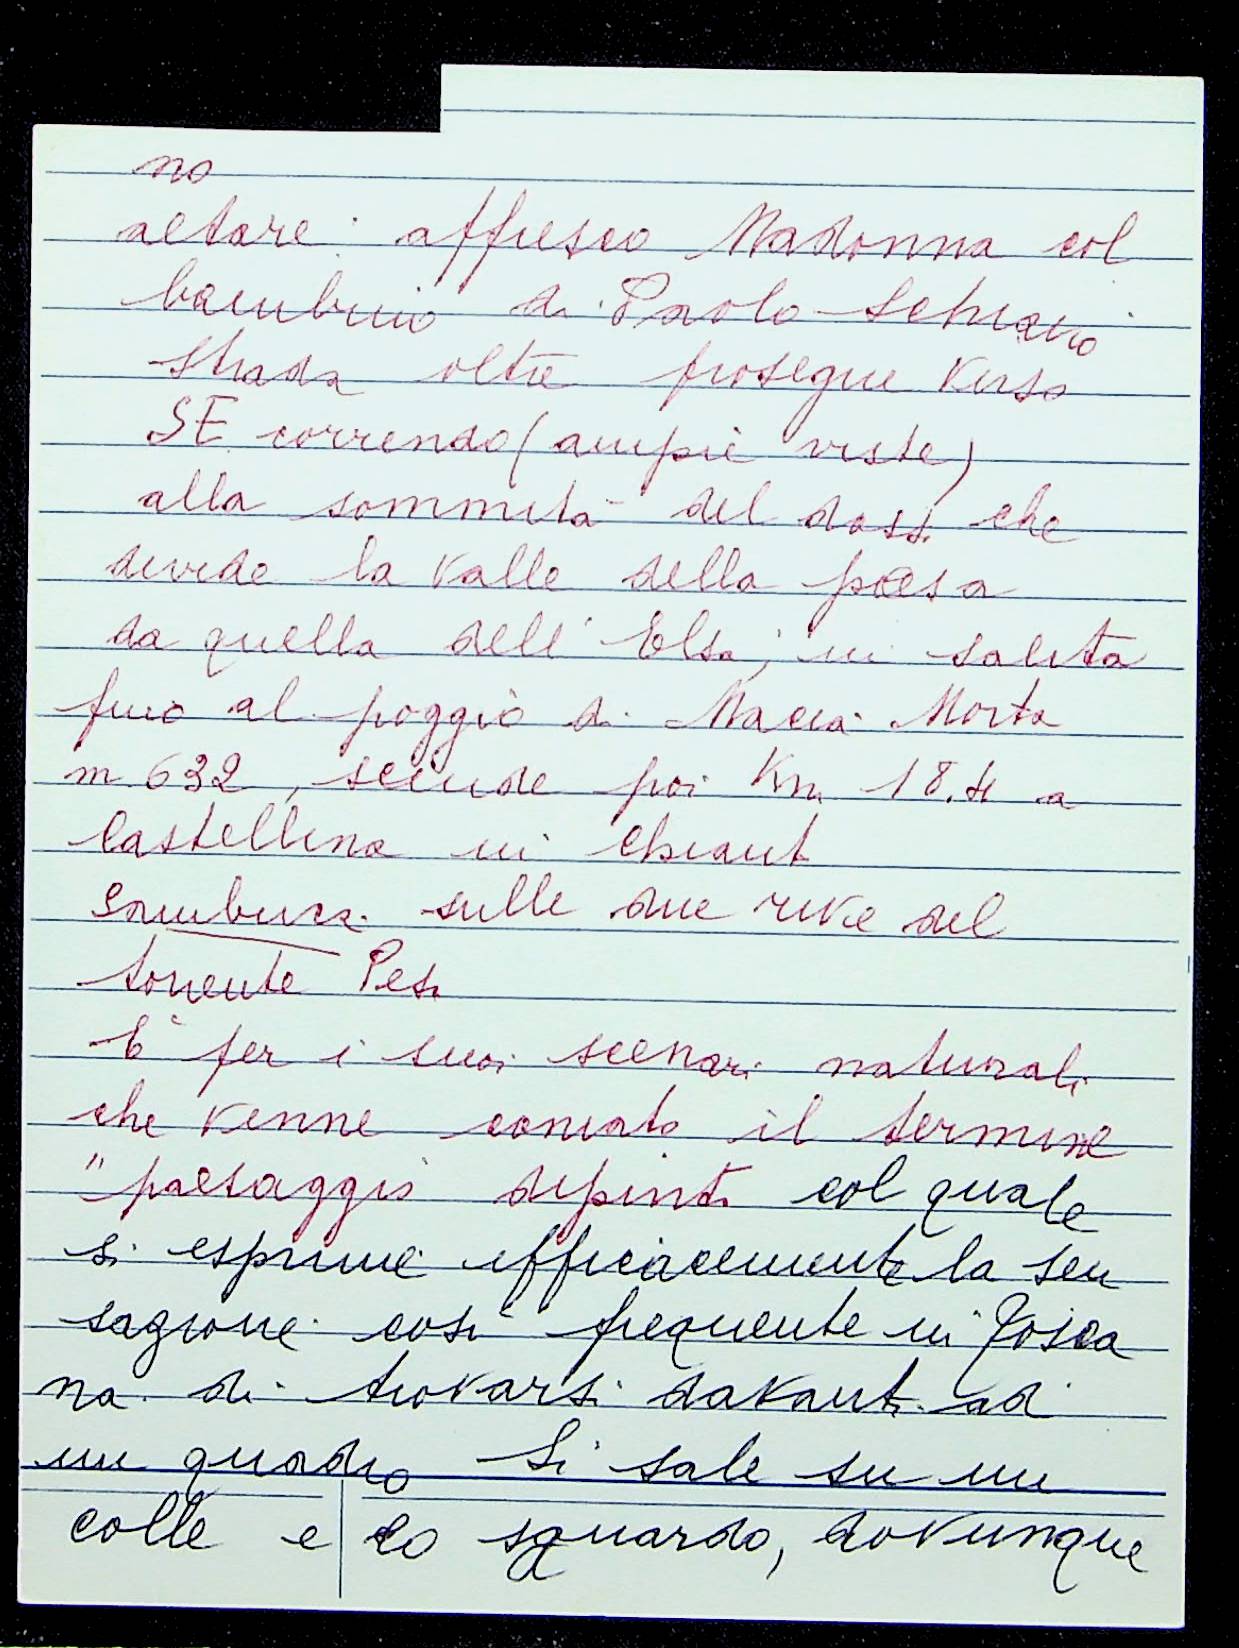 no
altare: affresco Madonna col
bambino di Paolo Schiavo
strada oltre prosegue verso
SE correndo (ampie viste)
alla sommità del dosso che
divide la valle della pesa
da quella dell'Elsa, in salita
fino al poggio di Macia Morta
m 632, scende poi Km 18.4 a
Castellina in Chianti
Sambuca sulle due rive del
torrente Pesa
E' per i suoi scenari naturali
che venne coniato il termine
"paesaggio dipinto col quale
si esprime efficacemente la sen
sazione così frequente in Tosca
na di trovarsi davanti ad
un quadro Si sale su un
colle e lo sguardo, dovunque